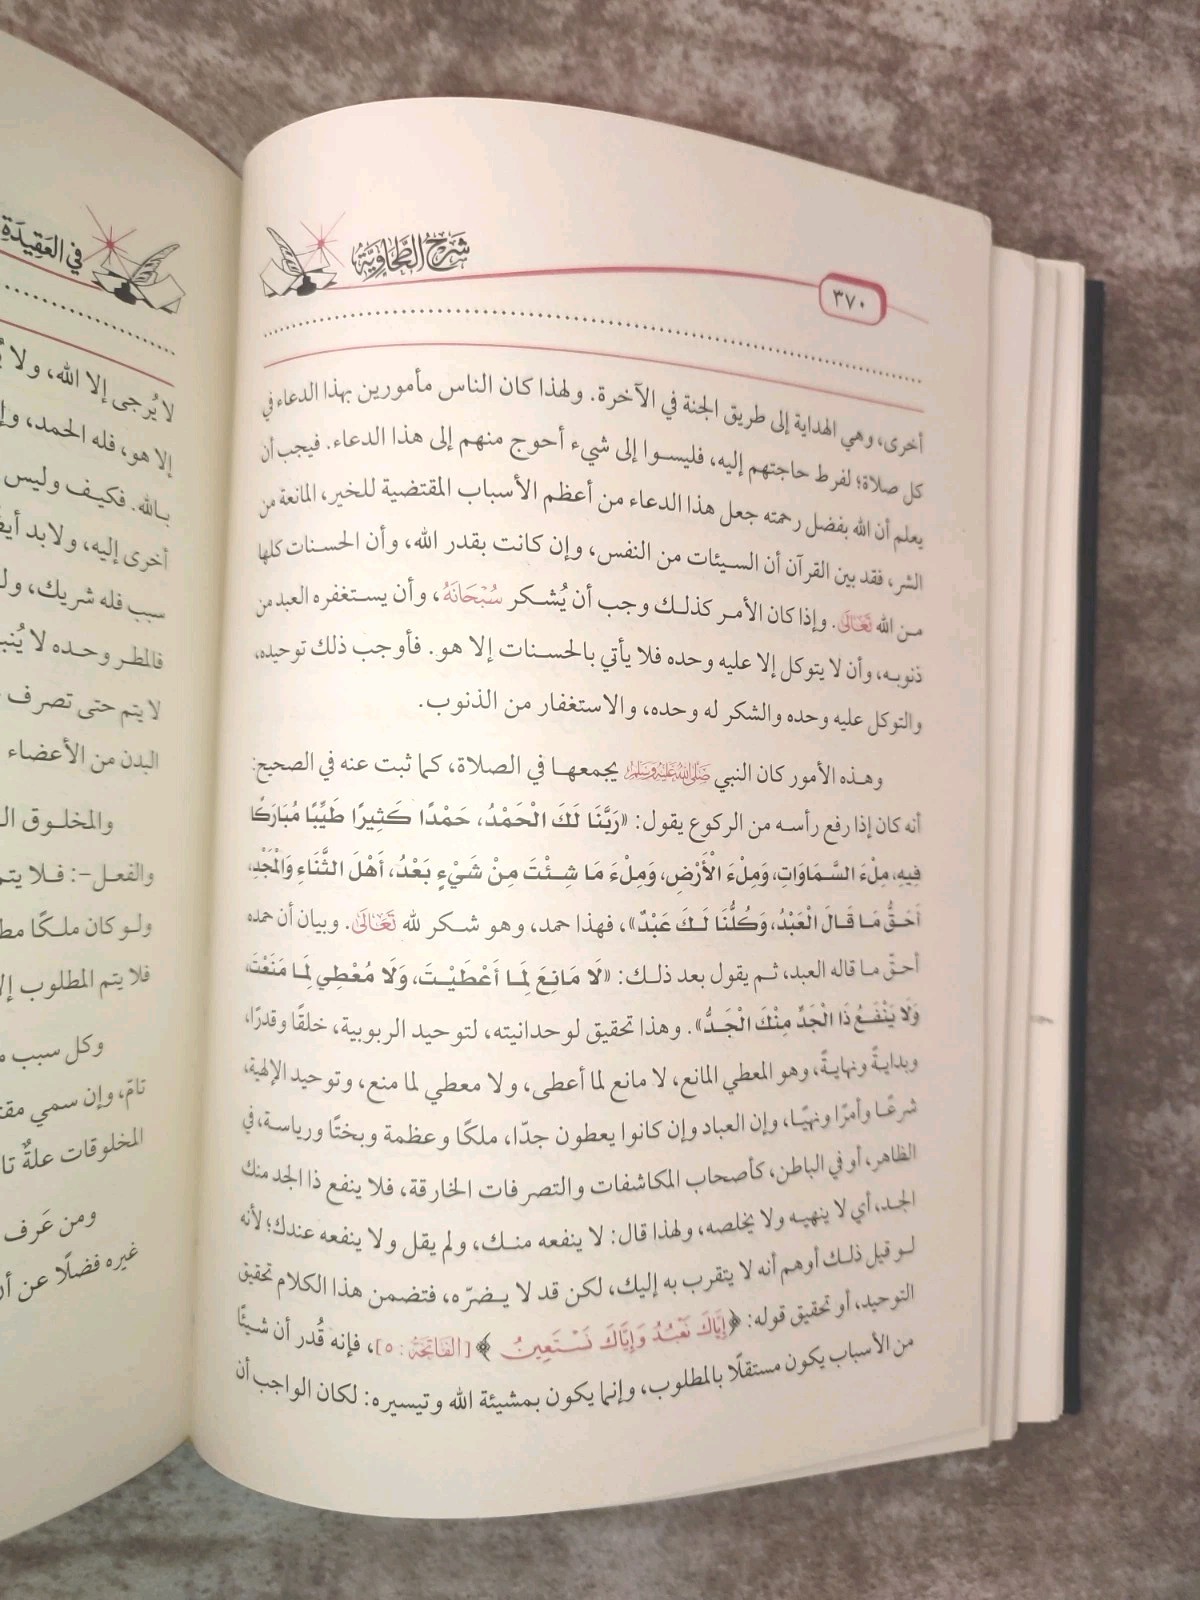 شَرْحُ الطَّحَاوِيَّةِ
٣٧٠
أخرى، وهي الهداية إلى طريق الجنة في الآخرة. ولهذا كان الناس مأمورين بهذا الدعاء في
كل صلاة؛ لفرط حاجتهم إليه، فليسوا إلى شيء أحوج منهم إلى هذا الدعاء. فيجب أن
يعلم أن الله بفضل رحمته جعل هذا الدعاء من أعظم الأسباب المقتضية للخير، المانعة من
الشر، فقد بين القرآن أن السيئات من النفس، وإن كانت بقدر الله، وأن الحسنات كلها
من الله تَعَالَى. وإذا كان الأمر كذلك وجب أن يُشكر سُبْحَانَهُ، وأن يستغفره العبد من
ذنوبه، وأن لا يتوكل إلا عليه وحده فلا يأتي بالحسنات إلا هو. فأوجب ذلك توحيده،
والتوكل عليه وحده والشكر له وحده، والاستغفار من الذنوب.
وهذه الأمور كان النبي صَلَّى اللَّهُ عَلَيْهِ وَسَلَّمَ يجمعها في الصلاة، كما ثبت عنه في الصحيح:
أنه كان إذا رفع رأسه من الركوع يقول: «رَبَّنَا لَكَ الْحَمْدُ، حَمْدًا كَثِيرًا طَيِّبًا مُبَارَكًا
فِيهِ، مِلْءَ السَّمَاوَاتِ، وَمِلْءَ الْأَرْضِ، وَمِلْءَ مَا شِئْتَ مِنْ شَيْءٍ بَعْدُ، أَهْلَ الثَّنَاءِ وَالْمَجْدِ،
أَحَقُّ مَا قَالَ الْعَبْدُ، وَكُلُّنَا لَكَ عَبْدٌ»، فهذا حمد، وهو شكر لله تَعَالَى. وبيان أن حمده
أحقّ ما قاله العبد، ثم يقول بعد ذلك: «لَا مَانِعَ لِمَا أَعْطَيْتَ، وَلَا مُعْطِي لِمَا مَنَعْتَ،
وَلَا يَنْفَعُ ذَا الْجَدِّ مِنْكَ الْجَدُّ». وهذا تحقيق لوحدانيته، لتوحيد الربوبية، خلقًا وقدرًا،
وبدايةً ونهايةً، وهو المعطي المانع، لا مانع لما أعطى، ولا معطي لما منع، وتوحيد الإلهية،
شرعًا وأمرًا ونهيًا، وإن العباد وإن كانوا يعطون جدّا، ملكًا وعظمة وبختًا ورياسة، في
الظاهر، أو في الباطن، كأصحاب المكاشفات والتصرفات الخارقة، فلا ينفع ذا الجد منك
الجد، أي لا ينهيه ولا يخلصه، ولهذا قال: لا ينفعه منك، ولم يقل ولا ينفعه عندك؛ لأنه
لو قيل ذلك أوهم أنه لا يتقرب به إليك، لكن قد لا يضرّه، فتضمن هذا الكلام تحقيق
التوحيد، أو تحقيق قوله: ﴿إِيَّاكَ نَعْبُدُ وَإِيَّاكَ نَسْتَعِينُ﴾ [الفَاتِحَة: ٥]، فإنه قُدر أن شيئًا
من الأسباب يكون مستقلًا بالمطلوب، وإنما يكون بمشيئة الله وتيسيره: لكان الواجب أن
في العَقِيدَةِ
لا يُرجى إلا الله، ولا
إلا هو، فله الحمد،
بالله. فكيف وليس
أخرى إليه، ولابد
سبب فله شريك،
فالمطر وحده لا
لا يتم حتى تصرف
البدن من الأعضاء
والمخلوق
والفعل-: فلا
ولو كان ملكًا
فلا يتم المطلوب
وكل سبب
تامّ، وإن سمي
المخلوقات علةٌ
ومن عَرف
غيره فضلًا عن